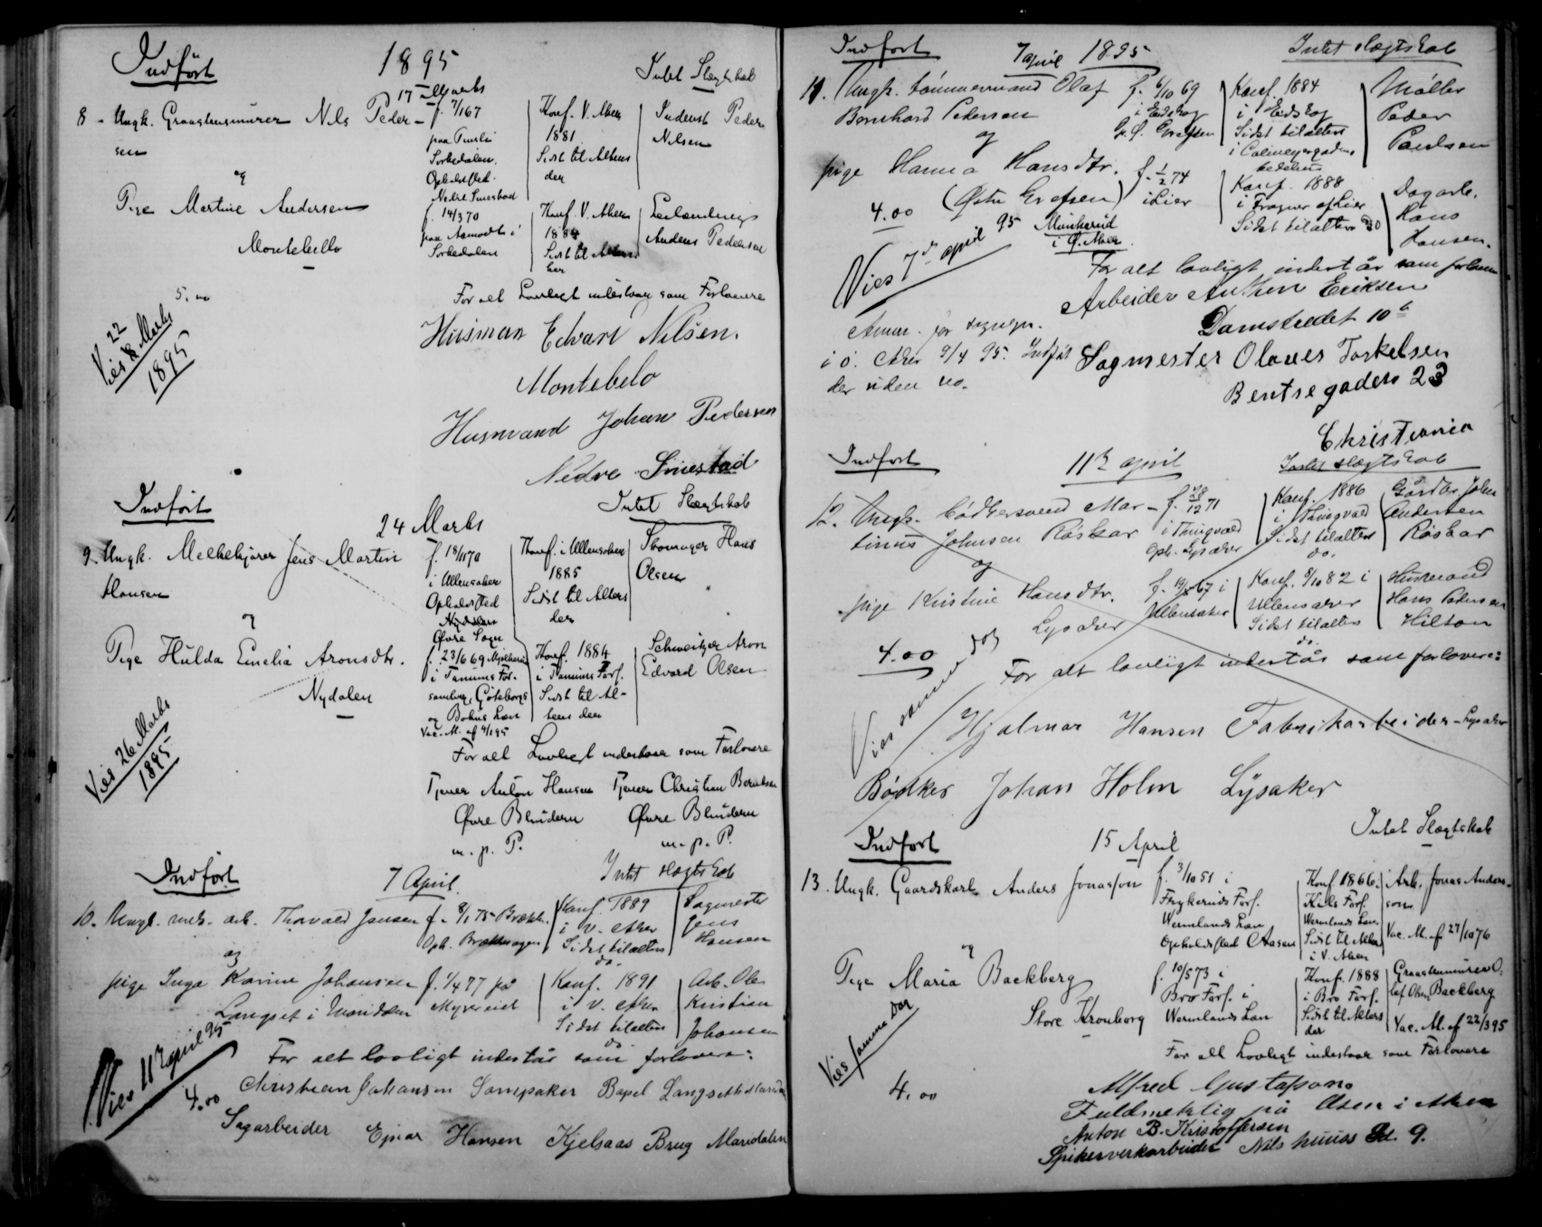 Indført 1895 Intet Slægtskab
17 Marts
8 - Ungk. Graastensmurer Nils Peder- f. 7/1 67 Konf. V. Aker Inderst Peder
sen paa 1881 Nilsen
Sørkedalen. Sidst til Alters
Opholdssted der
Nedre Smestad
og
Pige Martine Andersen f. 14/3 70 Konf. V. Aker
paa Aamodt i 1884 Anders Pedersen
Montebello Sørkedalen Sidst til Alters
her
5.00
For alt Lovligt indestaar som Forlovere
Viet 22 Marts
1895
Husman Edvart Nilsen.
Montebelo
Husmand Johan Pedersen
Nedre Smestad
Indført Intet Slægtskab
24 Marts
9. Ungk. Melkekjører Jens Martin f. 18/11 70 Konf. i Ullensaker Skomager Hans
Hansen i Ullensaker 1885 Olsen
Opholdssted Sidst til Alters
Nydalen der
Øvre Sogn
og
Pige Hulda Emelia Aronsdtr. f. 23/6 69 Konf. 1884 Schweitzer Aron
i Tanums For- i Tanums Forf. Edvard Olsen
Nydalen samling, Göteborgs Sidst til Al-
og Bohus Læn ters der
Vac. M. af 4/1 95
For alt Lovligt indestaar som Forlovere
Vies 26 Marts
1895
Tjener Anton Hansen Tjener Christian Berntsen
Øvre Blindern Øvre Blindern
m. p. P. m. p. P.
Indført 7 April. Intet slægtskab
10. Ungk. arb. Thorvald Jensen f. 8/1 75 Brække Konf. 1889 Sagmester
Oph. Brækkehagen i V. Aker Jens
Sidst til alters Hansen
do
og
pige Inga Karine Johansen f. 1/4 77 på Konf. 1891 Arb. Ole
Langset i Maridalen Myrereiet i V. Aker Kristian
Sidst til alters Johansen
do
Vies 11 april 95
For alt lovligt indestår som forlovere:
4.00 Christian Johansen Langset Maridalen
Sagarbeider Ejnar Hansen Kjelsaas Brug Maridalen
Indført 7 april 1895 Intet slægtskab
11. Ungk. tømmermand Olaf f. 6/10 69 Konf. 1884 Møller
Bernhard Pedersen i Eidskog i Eidskog Peder
G. Ø. Grefsen Sidst til alters Paulsen
og i Calmeyergadens
bedehus
pige Hanna Hansdtr. f. 1/2 74 Konf. 1888 Dagarb.
(Østre Grefsen) i Lier i Frogner af Lier Hans
4.00 Sidst til alters do Hansen.
Munkerud
i Ø. Aker.
Vies 7de april 95
For alt lovligt indestår som forlovere
Arbeider Anthon Eriksen
Damstrædet 10 b
i Ø. Aker 9/4 95. Indført
der uden no.
Sagmester Olaves Torkelsen
Bentsegaden 23
Christiania
Indført 11te april Intet slægtskab
12. Ungk. bødkersvend Mar- f. 28/12 71 Konf. 1886 Gårdbr. John
tinus Johnsen Røskar i Thingvold i Thingvold Andersen
Oph. Lysaker Sidst til alters Røskar
do.
og
pige Kristine Hansdtr. f. 19/8 67 i Konf. 8/10 82 i Husmand
Lysaker Ullensaker Ullensaker Hans Pedersen
Sidst til alters Hilton
do.
4.00
Vies samme dag
For alt lovligt indestår som forlovere:
Hjalmar Hansen Fabrikarbeider - Lysaker
Bødker Johan Holm Lysaker
Indført 15 April Intet Slægtskab
13. Ungk. Gaardskarl Anders Jonasson f. 3/10 51 i Konf. 1866 i Arb. Jonas Anders-
Frykeruds Forf. Kihls Forf. son
Wermlands Læn Wermlands Læn.
Opholdssted Aasen Sidst til Alters Vac. M. af 27/10 76
i V. Aker
og
Pige Maria Backberg f. 10/5 73 i Konf. 1888 Graastensmurer O-
Bro Forf. i i Bro Forf. lof Olsen Backberg
Store Kronborg Wermlands Læn Sidst til Alters
der Vac. M. af 22/3 95
Vies samme Dag
For alt Lovligt indestaar som Forlovere
4.00
Alfred Gustafson.
Fuldmektig på Åsen i Aker
Anton B. Kristoffersen
Spikerverkarbeider Nils huus Gd. 9.